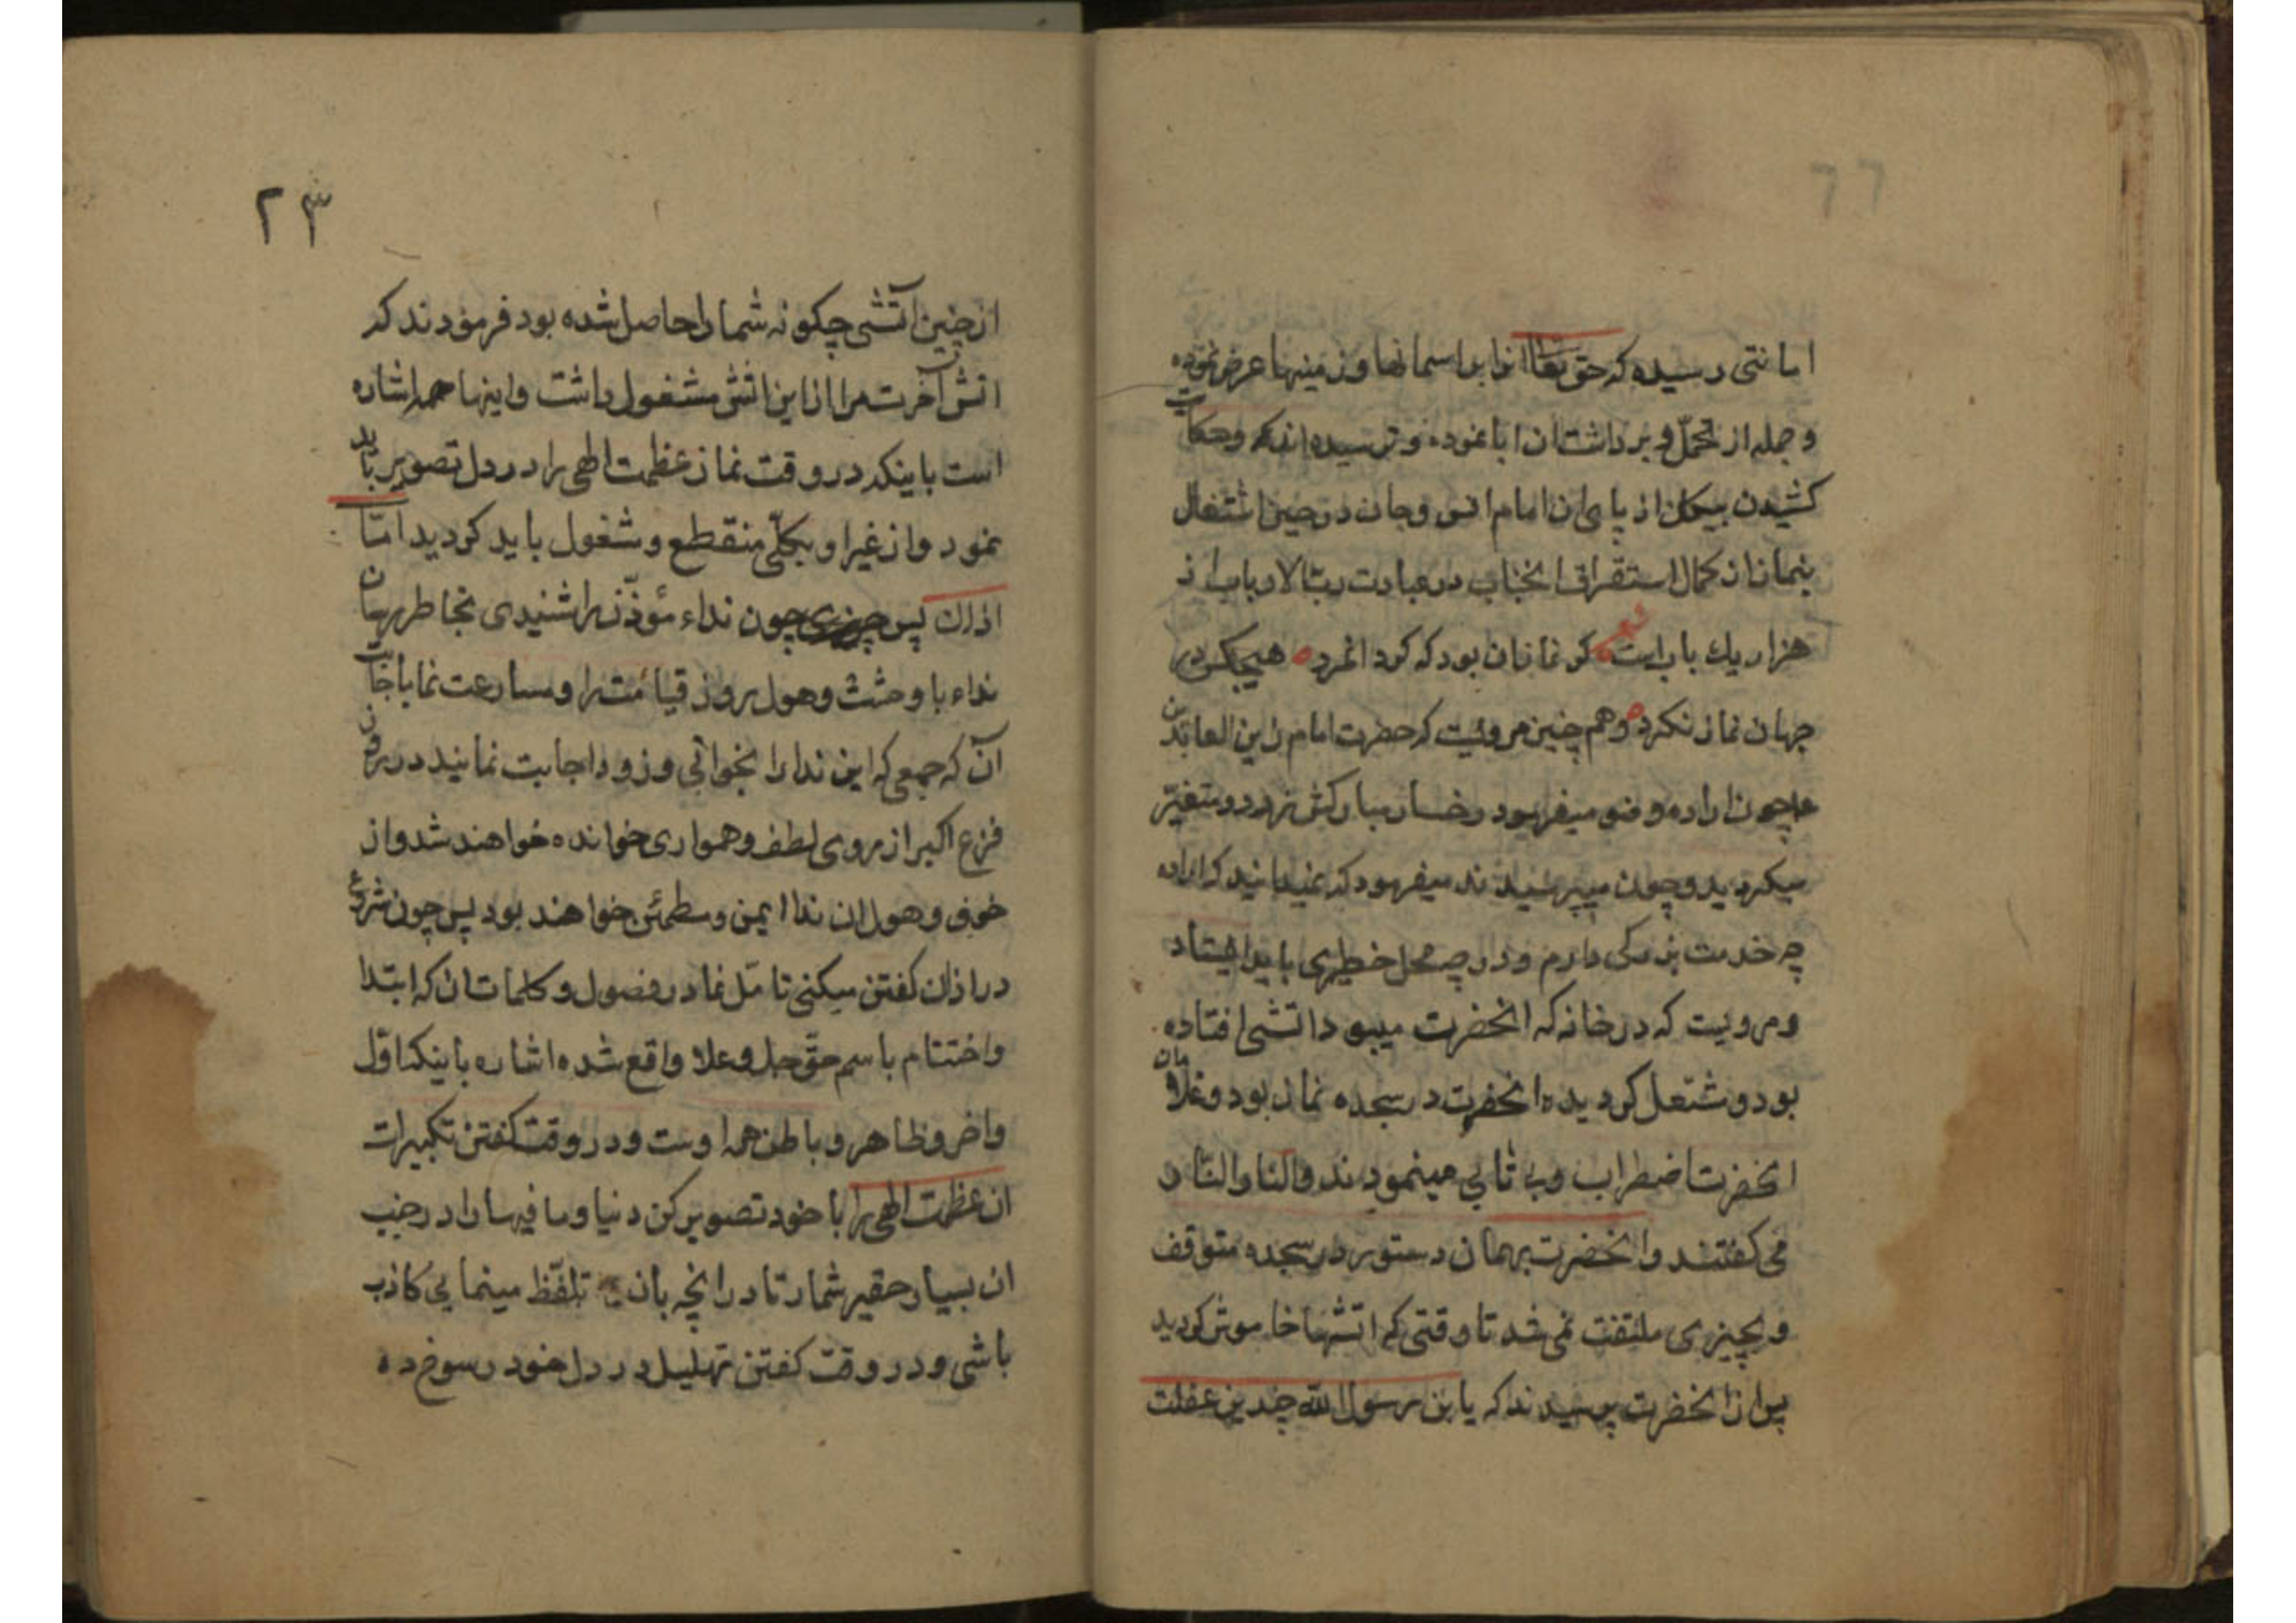 امانتی رسیده که حق تعا انرا براسمانها و زمینها عرض نموده
و جمله از تحمل و برداشت ان ابا نموده و ترسیده اند و حکایت
کشیدن پیکان از پای ان امام انس و جان در حین اشتغال
بنماز از کمال استغراق انجناب در عبادت رب الارباب از
هزار یك باب است شعر کر نماز ان بود که کرد انمرد هیچکس در
جهان نماز نکرد و هم چنین مرویست که حضرت امام زین العابدین
ع چون اراده وضو میفرمود رخسار مبارکش زرد و متغیر
میکردید و چون میپرسیدند میفرمود که نمیدانید که اراده
چه خدمت بزرکی دارم و در چه محل خطیری باید ایستاد
و مرویست که در خانه که انحضرت میبود اتشی افتاده
بود و مشتعل کردیده انحضرت در سجده نماز بود و غلامان
انحضرت اضطراب و بی تابی مینمودند و النار النار
می کفتند و انحضرت بر همان دستور در سجده متوقف
و بچیزی ملتفت نمی شد تا وقتی که اتشها خاموش کردید
پس از انحضرت پرسیدند که یا بن رسول الله چندین غفلت
۲۳
از چنین آتشی چکونه شما را حاصل شده بود فرمودند که
اتش آخرت مرا از این اتش مشغول داشت و اینها همه اشاره
است باینکه در وقت نماز عظمت الهی را در دل تصویر باید
نمود و از غیر او بکلی منقطع و مشغول باید کردید اما
اذان پس چون نداء مؤذن را شنیدی بخاطر برسان
نداء با وحشت و هول روز قیامت را و مسارعت نما باجابت
آن که جمعی که این ندا را بخوانی و زود اجابت نمایند در روز
فزع اکبر از روی لطف و همواری خوانده خواهند شد و از
خوف و هول ان ندا ایمن و مطمئن خواهند بود پس چون شروع
در اذان کفتن میکنی تامل نما در فصول و کلمات ان که ابتدا
و اختتام باسم حق جل و علا واقع شده اشاره باینکه اول
و اخر و ظاهر و باطن همه اوست و در وقت کفتن تکبیرات
ان عظمت الهی را با خود تصویر کن دنیا و ما فیها را در جنب
ان بسیار حقیر شمار تا در انچه بان تلفظ مینمایی کاذب
باشی و در وقت کفتن تهلیل در دل خود رسوخ ده